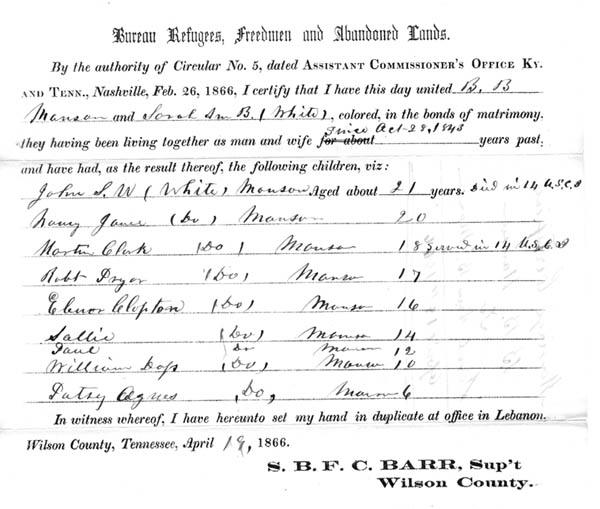 Bureau Refugees, Freedmen and Abandoned Lands.
By the authority of Circular No. 5, dated ASSISTANT COMMISSIONER'S OFFICE KY.
AND TENN., Nashville, Feb. 26, 1866, I certify that I have this day united B. B
Manson and Sarah Ann B. (White), colored, in the bonds of matrimony.
since Oct 28, 1843
they having been living together as man and wife for about years past,
and have had, as the result thereof, the following children, viz:
John S. W (White) Manson Aged about 21 years. Died in 14 U.S.C.I
Nancy Jane (Do) Manson 20
Martin Clark (Do) Manson 18 served in 14 U.S.C.I
Robt Pryor (Do) Manson 17
Elenor Clopton (Do) Manson 16
Sallie (Do) Manson 14
Paul Do Manson 12
William (Do) Manson 10
Patsy Agnes Do, Manson 6
In witness whereof, I have hereunto set my hand in duplicate at office in Lebanon.
Wilson County, Tennessee, April 19, 1866.
S. B. F. C. BARR, Sup't
Wilson County.